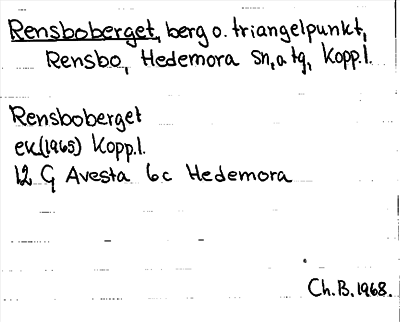 Rensboberget, berg o. triangelpunkt,
Rensbo, Hedemora sn, a tg, Kopp.l.
Rensboberget
ek.(1965) Kopp.l.
12 G Avesta 6c Hedemora
Ch.B. 1968.